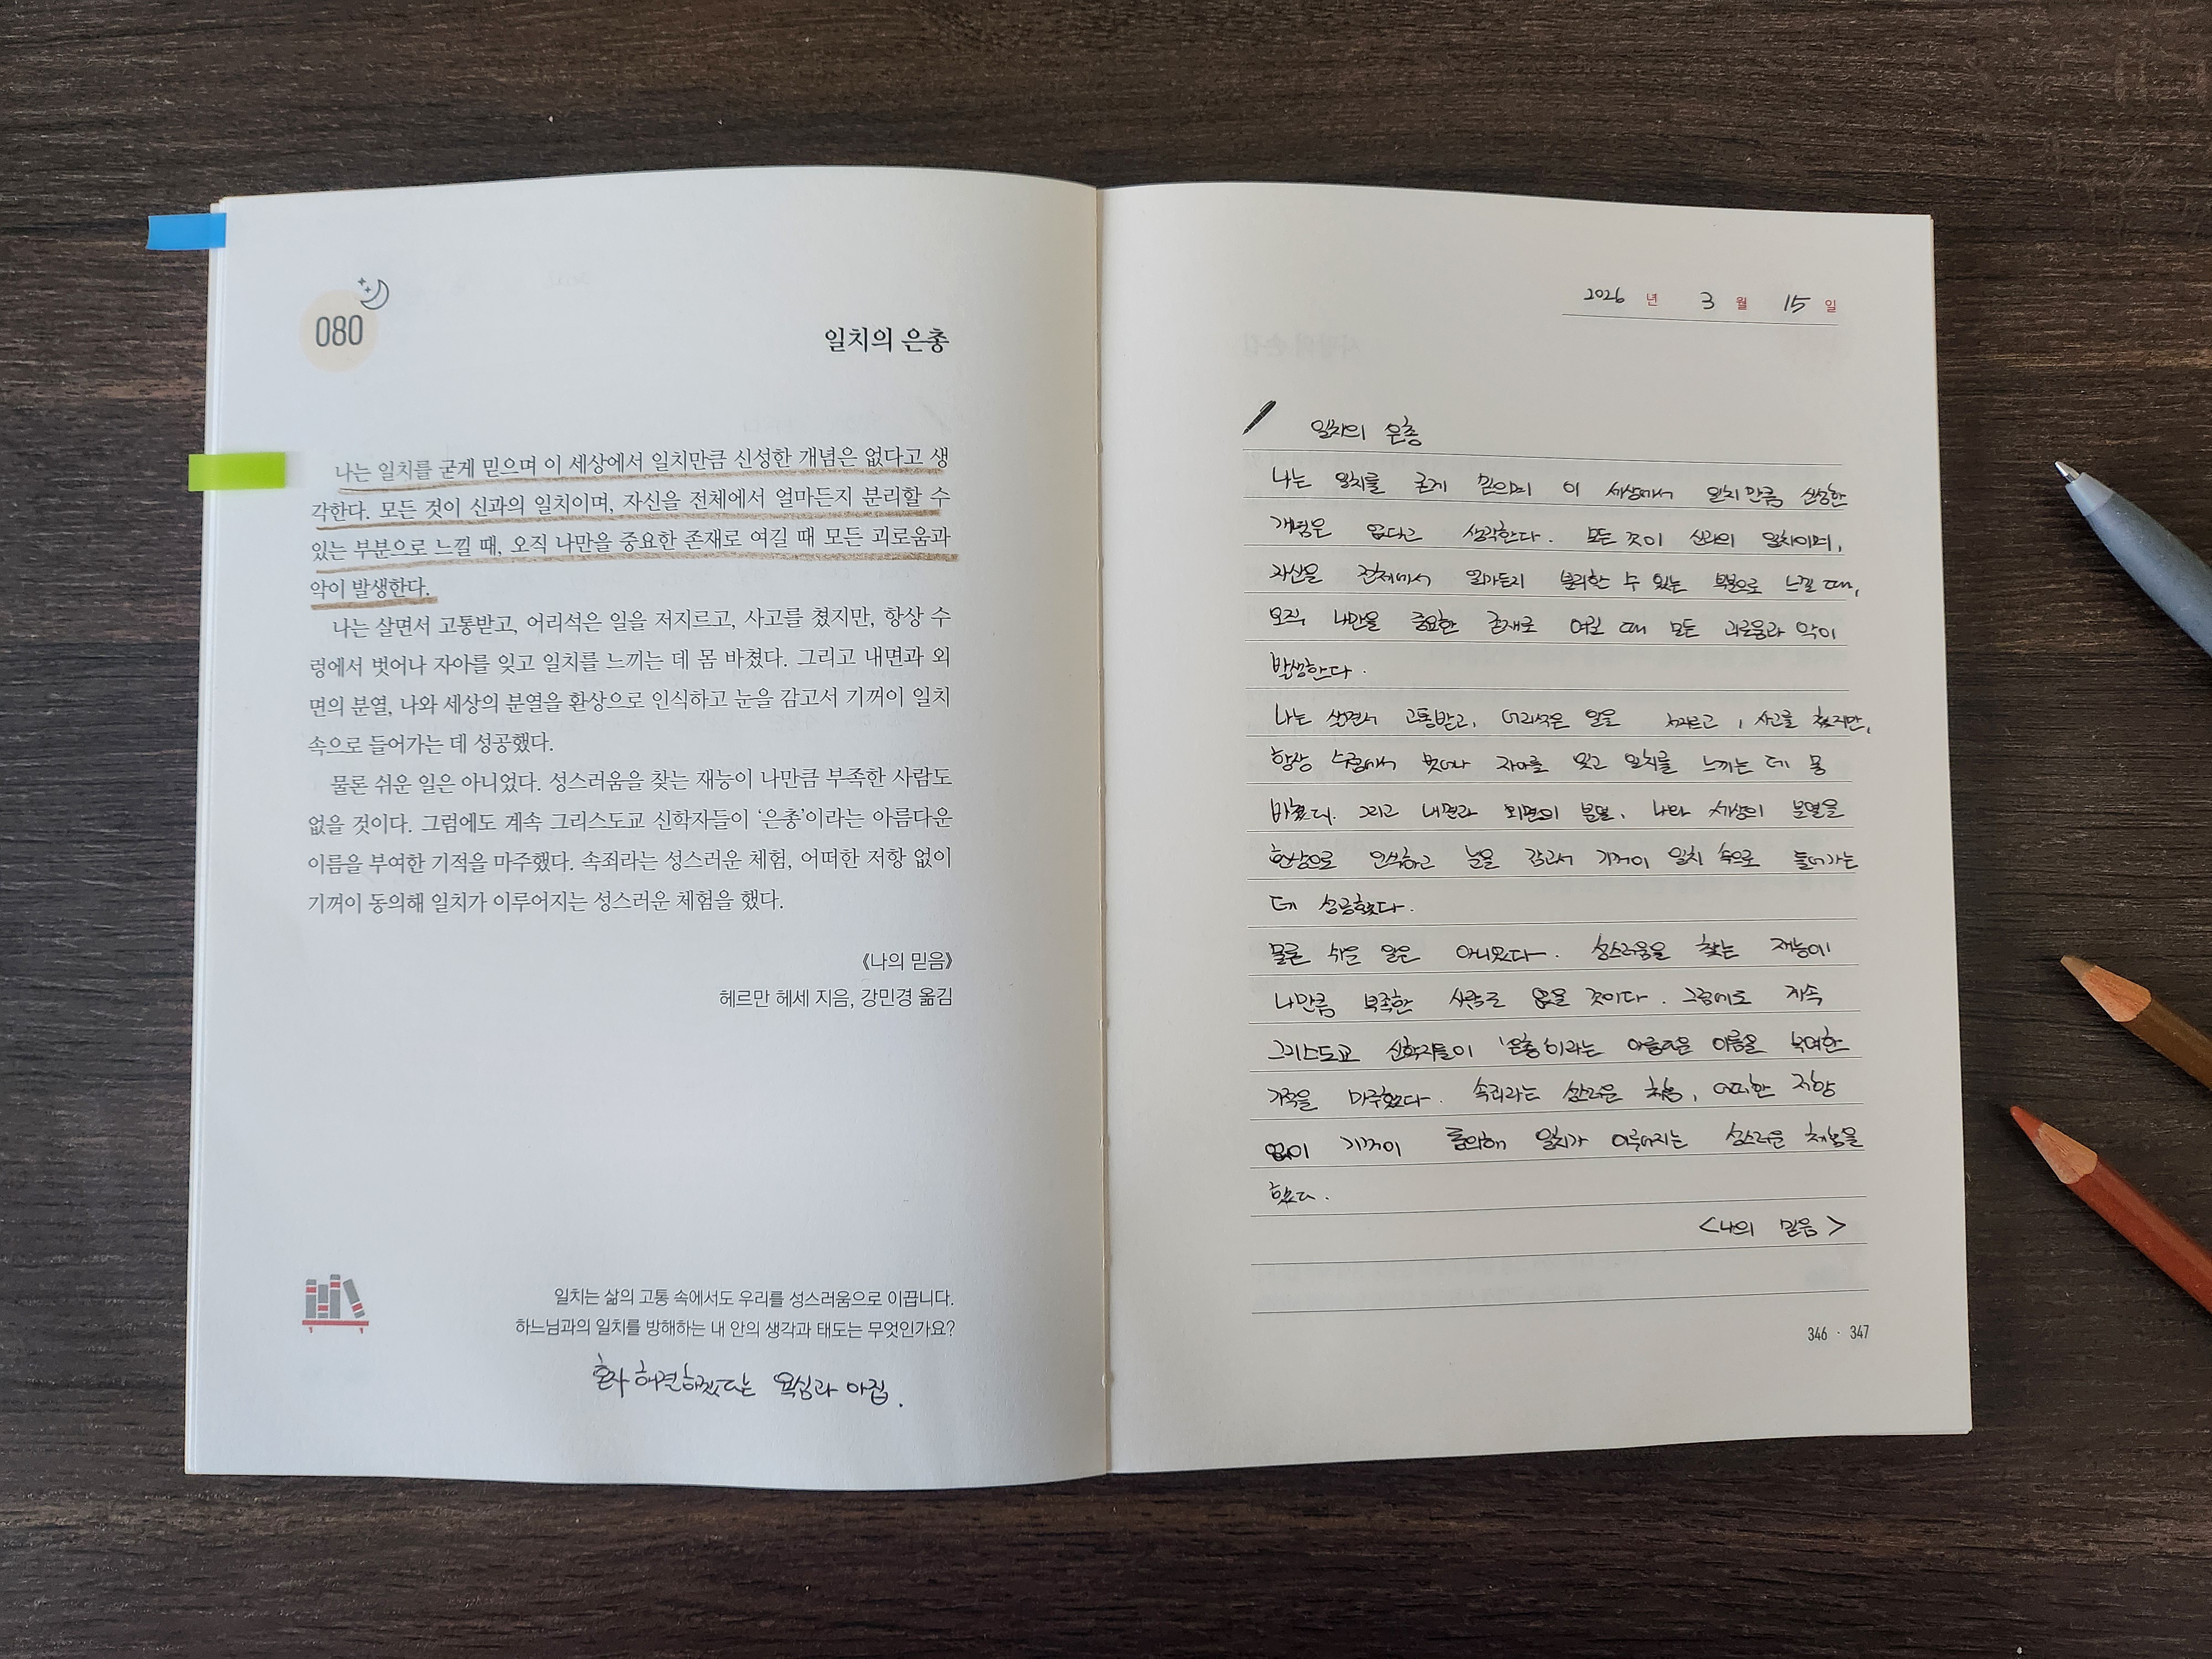 080
일치의 은총
나는 일치를 굳게 믿으며 이 세상에서 일치만큼 신성한 개념은 없다고 생
각한다. 모든 것이 신과의 일치이며, 자신을 전체에서 얼마든지 분리할 수
있는 부분으로 느낄 때, 오직 나만을 중요한 존재로 여길 때 모든 괴로움과
악이 발생한다.
나는 살면서 고통받고, 어리석은 일을 저지르고, 사고를 쳤지만, 항상 수
렁에서 벗어나 자아를 잊고 일치를 느끼는 데 몸 바쳤다. 그리고 내면과 외
면의 분열, 나와 세상의 분열을 환상으로 인식하고 눈을 감고서 기꺼이 일치
속으로 들어가는 데 성공했다.
물론 쉬운 일은 아니었다. 성스러움을 찾는 재능이 나만큼 부족한 사람도
없을 것이다. 그럼에도 계속 그리스도교 신학자들이 ‘은총’이라는 아름다운
이름을 부여한 기적을 마주했다. 속죄라는 성스러운 체험, 어떠한 저항 없이
기꺼이 동의해 일치가 이루어지는 성스러운 체험을 했다.
《나의 믿음》
헤르만 헤세 지음, 강민경 옮김
일치는 삶의 고통 속에서도 우리를 성스러움으로 이끕니다.
하느님과의 일치를 방해하는 내 안의 생각과 태도는 무엇인가요?
혼자 해결하겠다는 욕심과 아집.
2026 년 3 월 15 일
일치의 은총
나는 일치를 굳게 믿으며 이 세상에서 일치만큼 신성한
개념은 없다고 생각한다. 모든 것이 신과의 일치이며,
자신을 전체에서 얼마든지 분리할 수 있는 부분으로 느낄 때,
오직 나만을 중요한 존재로 여길 때 모든 괴로움과 악이
발생한다.
나는 살면서 고통받고, 어리석은 일을 저지르고, 사고를 쳤지만,
항상 수렁에서 벗어나 자아를 잊고 일치를 느끼는 데 몸
바쳤다. 그리고 내면과 외면의 분열, 나와 세상의 분열을
환상으로 인식하고 눈을 감고서 기꺼이 일치 속으로 들어가는
데 성공했다.
물론 쉬운 일은 아니었다. 성스러움을 찾는 재능이
나만큼 부족한 사람도 없을 것이다. 그럼에도 계속
그리스도교 신학자들이 '은총'이라는 아름다운 이름을 부여한
기적을 마주했다. 속죄라는 성스러운 체험, 어떠한 저항
없이 기꺼이 동의해 일치가 이루어지는 성스러운 체험을
했다.
<나의 믿음>
346 · 347